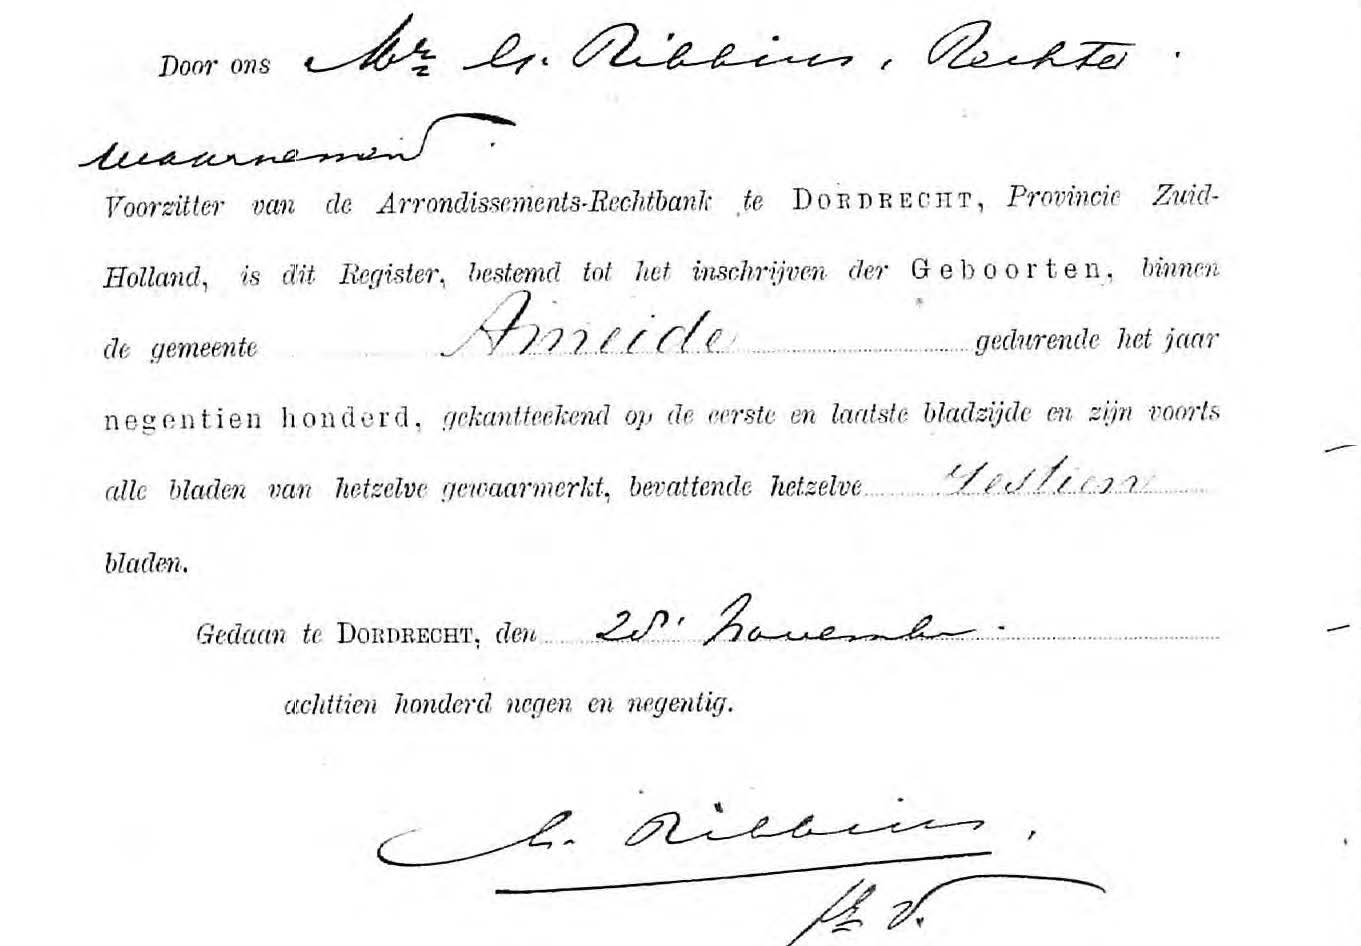 Door ons Mr. G. Ribbius, Rechter
waarnemend
Voorzitter van de Arrondissements-Rechtbank te DORDRECHT, Provincie Zuid-
Holland, is dit Register, bestemd tot het inschrijven der Geboorten, binnen
de gemeente Ameide gedurende het jaar
negentien honderd, gekantteekend op de eerste en laatste bladzijde en zijn voorts
alle bladen van hetzelve gewaarmerkt, bevattende hetzelve Zestien
bladen.
Gedaan te DORDRECHT, den November
achttien honderd negen en negentig.
G. Ribbius,